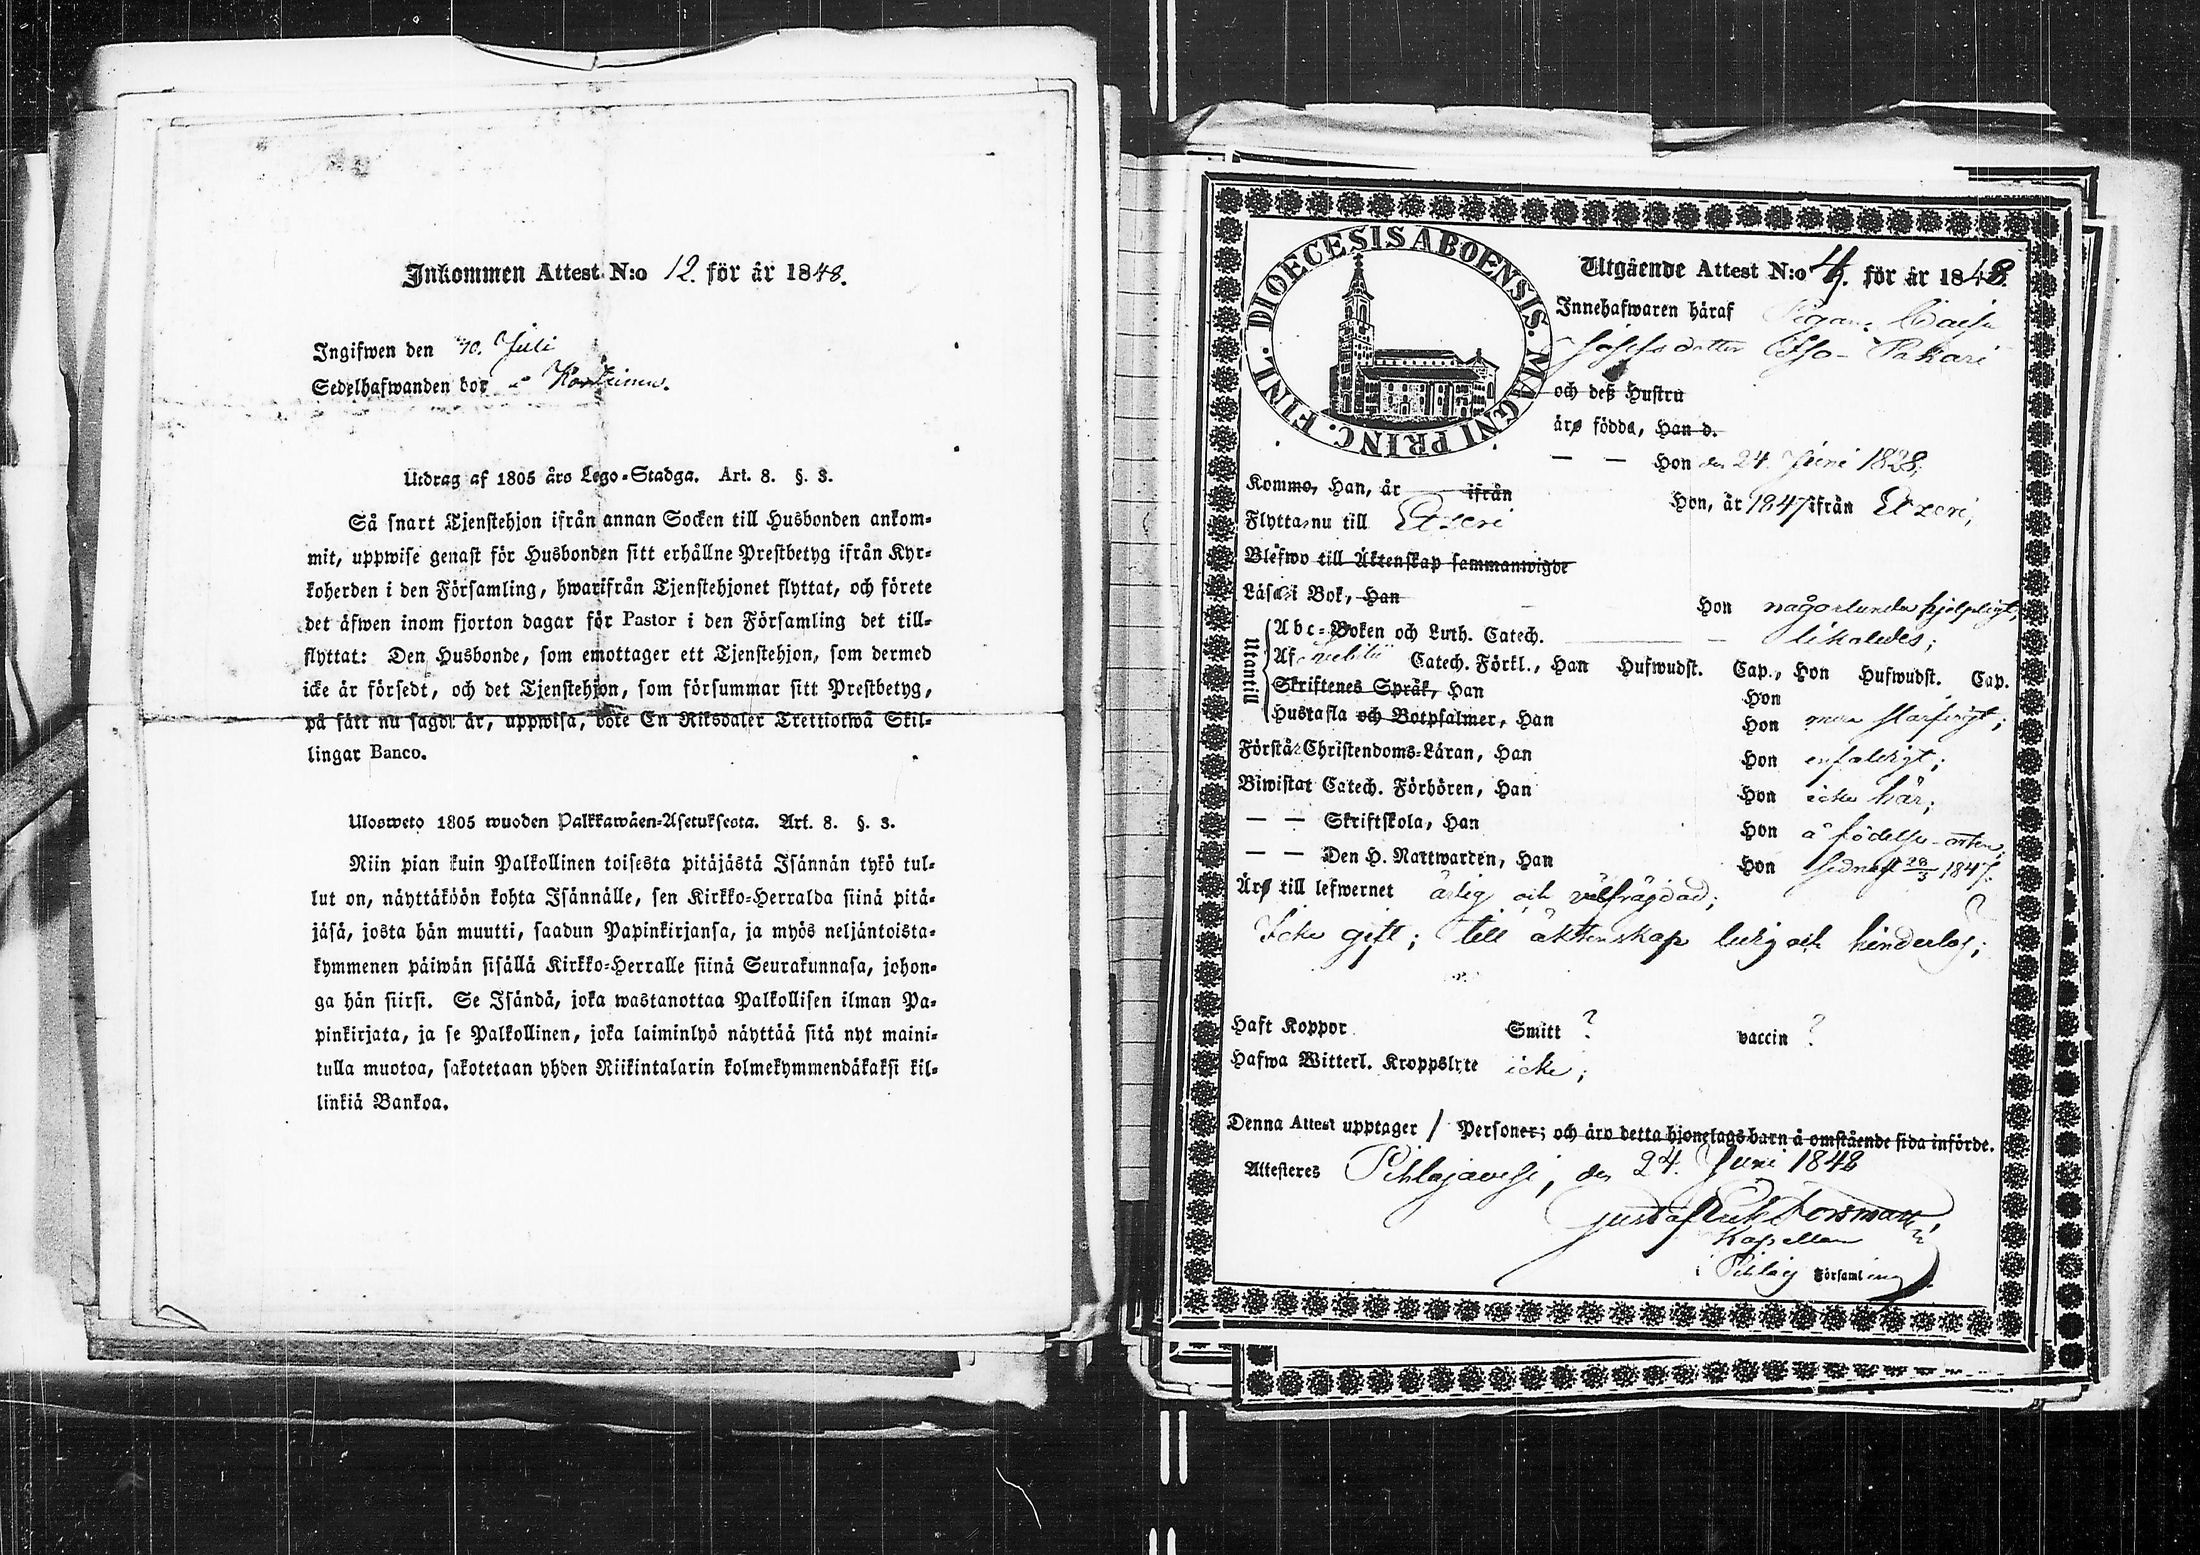 Inkommen Attest N:o 12. för år 1848.
Ingifwen den 10. Juli
Sedelhafwanden bor
Utdrag af 1805 års Lego-Stadga. Art. 8. §. 3.
Så snart Tjenstehjon ifrån annan Socken till Husbonden ankom-
mit, uppwise genast för Husbonden sitt erhållne Prestbetyg ifrån Kyr-
koherden i den Församling, hwarifrån Tjenstehjonet flyttat, och förete
det äfwen inom fjorton dagar för Pastor i den Församling det till-
flyttat: Den Husbonde, som emottager ett Tjenstehjon, som dermed
icke är försedt, och det Tjenstehjon, som försummar sitt Prestbetyg,
på sätt nu sagdt är, uppwisa, böte En Riksdaler Trettiotwå Skil-
lingar Banco.
Ulosweto 1805 wuoden Palkkawäen-Asetuksesta. Art. 8. §. 3.
Niin pian kuin Palkollinen toisesta pitäjästä Isännän tykö tul-
lut on, näyttäköön kohta Isännälle, sen Kirkko-Herralda siinä pitä-
jäsä, josta hän muutti, saadun Papinkirjansa, ja myös neljäntoista-
kymmenen päiwän sisällä Kirkko-Herralle siinä Seurakunnasa, johon-
ga hän siirsi. Se Isändä, joka wastanottaa Palkollisen ilman Pa-
pinkirjata, ja se Palkollinen, joka laiminlyö näyttää sitä nyt maini-
tulla muotoa, sakotetaan yhden Riikintalarin kolmekymmendäkaksi kil-
linkiä Bankoa.
DIOECESIS ABOENSIS. MAGNI PRINC. FINL.
Utgående Attest N:o 4. för år 1848.
Innehafwaren häraf Pigan
Josefsdotter
och deß Hustru
äro födda, Han d.
— — Hon den 24. Juni 1828;
Kommo, Han, år ifrån Hon, år 1847 ifrån Etzeri;
Flytta nu till Etzeri
Blefwo till Äktenskap sammanwigde
Läsa i Bok, Han Hon någorlunda hjelpligt;
Utantill
Abc-Boken och Luth. Catech. likaledes;
Af Catech. Förkl., Han Hufwudst. Cap., Hon Hufwudst. Cap.
Skriftenes Språk, Han Hon
Hustafla och Botpsalmer, Han Hon
Förstår Christendoms-Läran, Han Hon enfaldigt;
Biwistat Catech. Förhören, Han Hon icke här;
— — Skriftskola, Han Hon å födelse-orten;
— — Den H. Nattwarden, Han Hon 1847.
Äro till lefwernet ärlig och välfrägdad;
Icke gift; till äktenskap ledig och hinderlös;
Haft Koppor Smitt ? vaccin ?
Hafwa Witterl. Kroppslyte icke;
Denna Attest upptager 1 Personer; och äro detta hjonelags barn å omstående sida införde.
Attesteres Pihlajavesi, den 24. Juni 1848
Gustaf Erik Forsman
Kapellan
i Pihlaj Församling